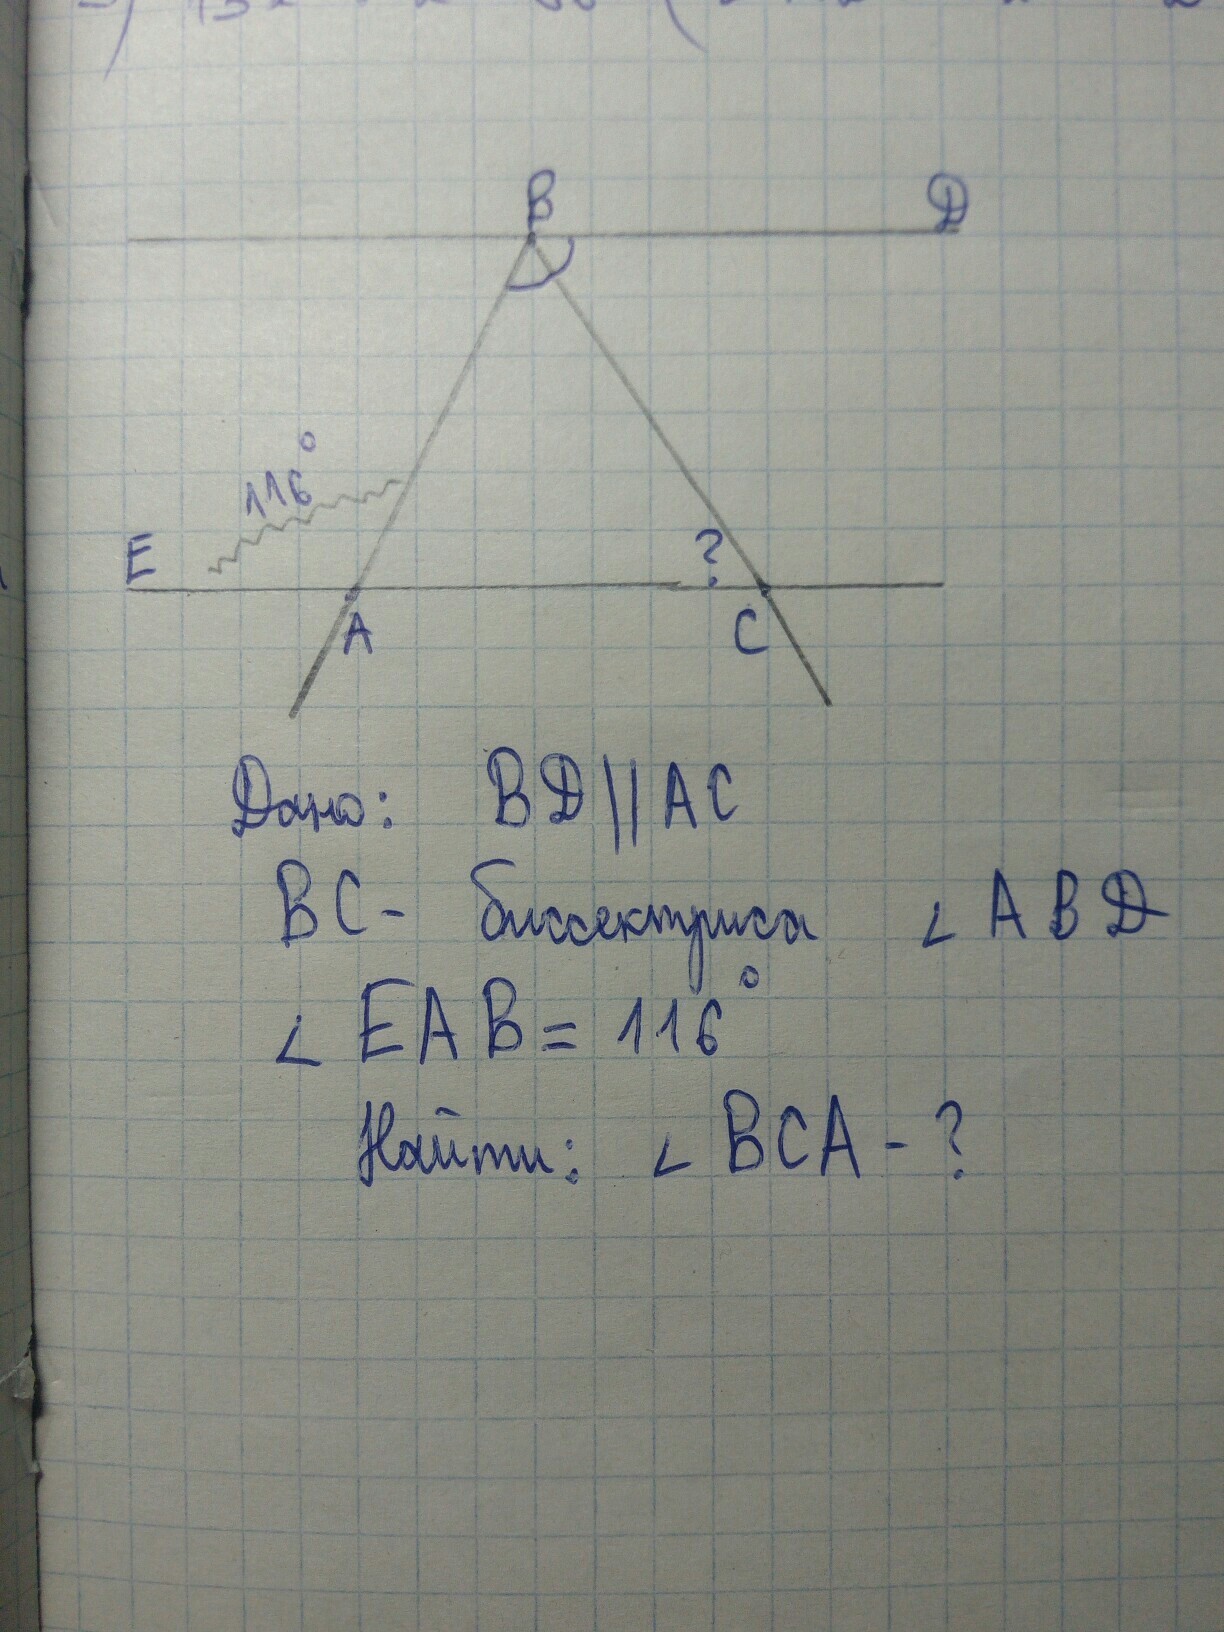 B D
116°
E ?
A C
Дано: BD || AC
BC - биссектриса ∠ ABD
∠ EAB = 116°
Найти: ∠ BCA - ?